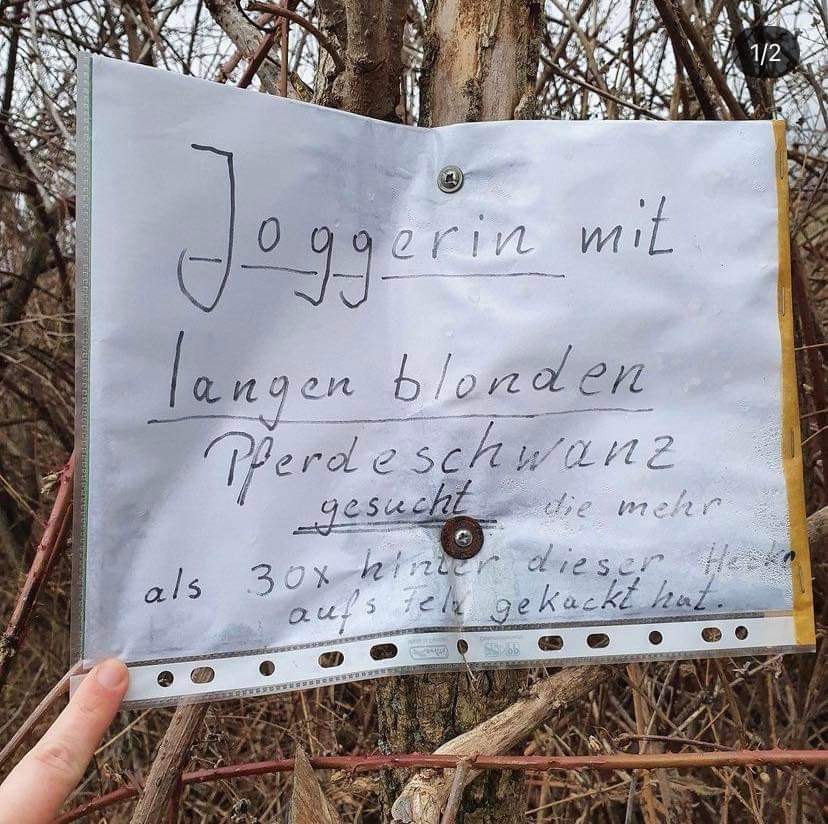 1/2
Joggerin mit
langen blonden
Pferdeschwanz
gesucht die mehr
als 30x hinter dieser Hecke
aufs Feld gekackt hat.